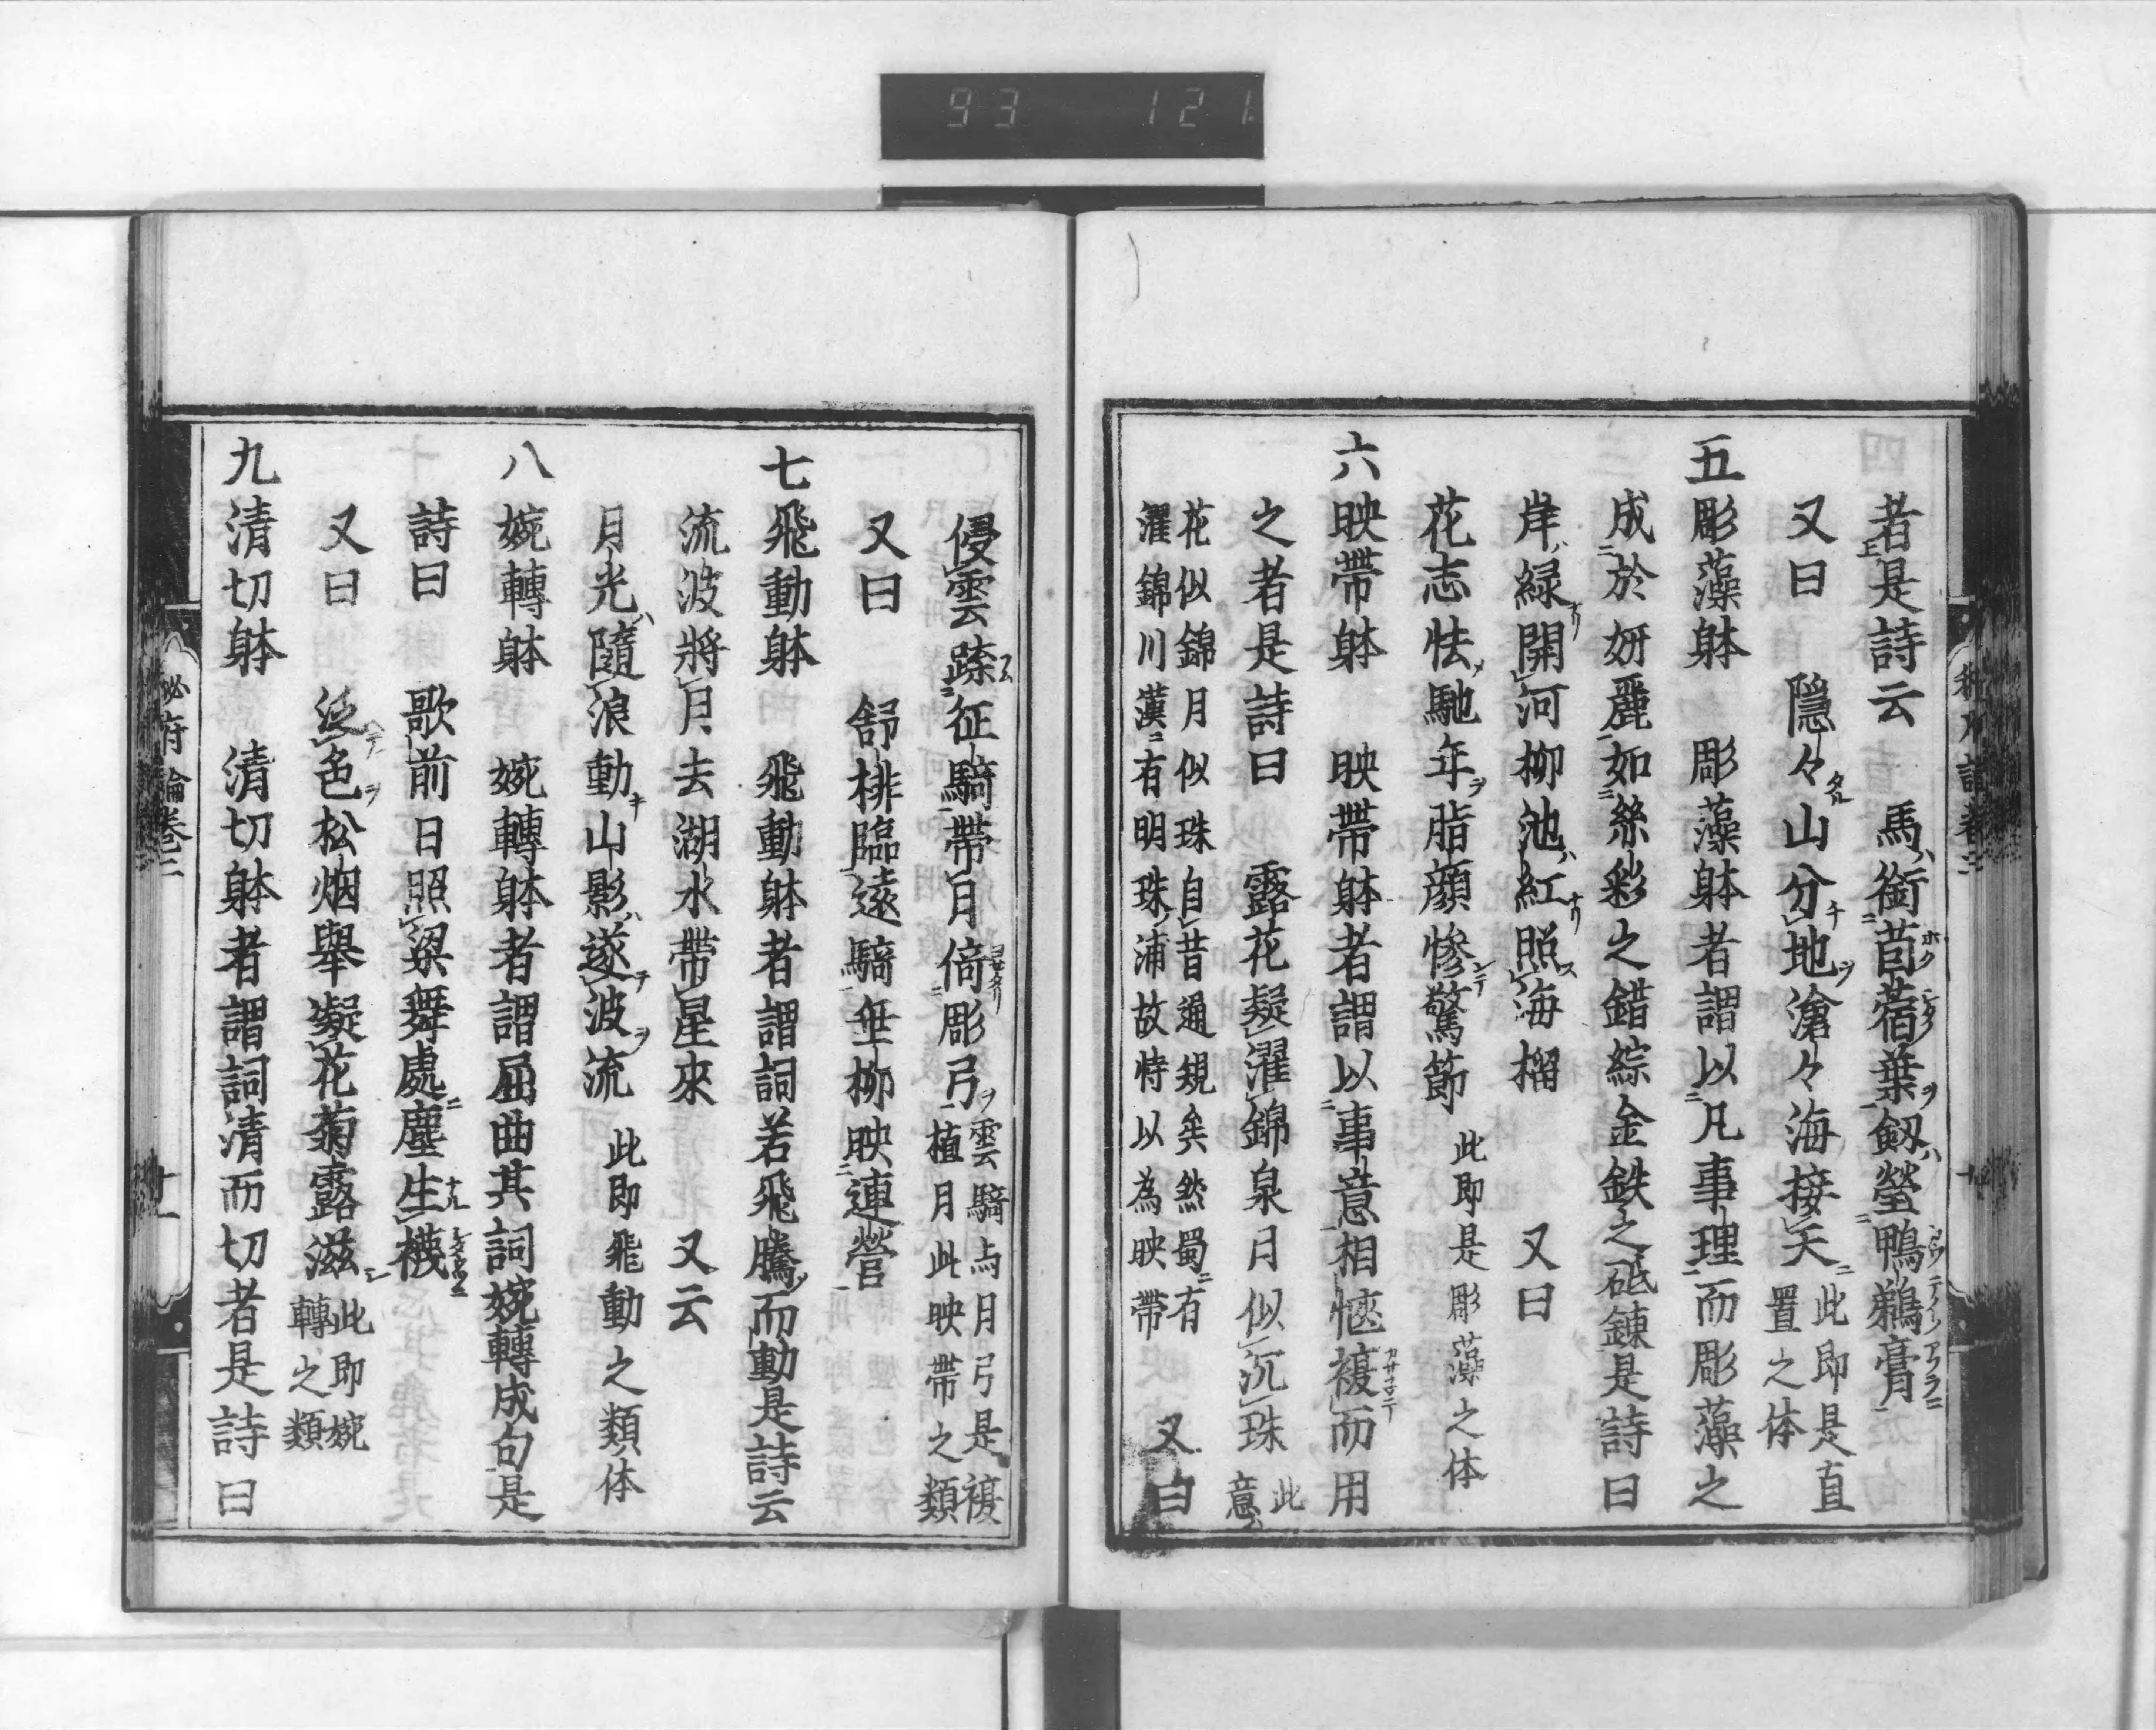 93 121
者是詩云 馬銜苜蓿葉劔瑩鴨鵜膏
又曰 隠々山分地滄々海接天 此即是直
置之体
五 彫藻躰 彫藻躰者謂以凡事理而彫藻之
成於妍麗如絲彩之錯綜金鉄之砥錬是詩曰
岸緑開河柳池紅照海榴 又曰
花志怯馳年脂顔惨驚節 此即是彫藻之体
六 映帶躰 映帶躰者謂以事意相愜複而用
之者是詩曰 露花疑濯錦泉月似沉珠 此
意
花似錦月似珠自昔通規矣然蜀有
濯錦川漢有明珠浦故特以為映帶 又曰
侵雲蹀征騎帶月倚彫弓 雲騎与月弓是複
植月此映帶之類
又曰 舒桃臨遠騎垂柳映連營
七 飛動躰 飛動躰者謂詞若飛騰而動是詩云
流波將月去湖水帶星來 又云
月光隨浪動山影逐波流 此即飛動之類体
八 婉轉躰 婉轉躰者謂屈曲其詞婉轉成句是
詩曰 歌前日照梁舞處塵生襪
又曰 泛色松烟舉凝花菊露滋 此即婉
轉之類
九 清切躰 清切躰者謂詞清而切者是詩曰
秘府論巻二 十一